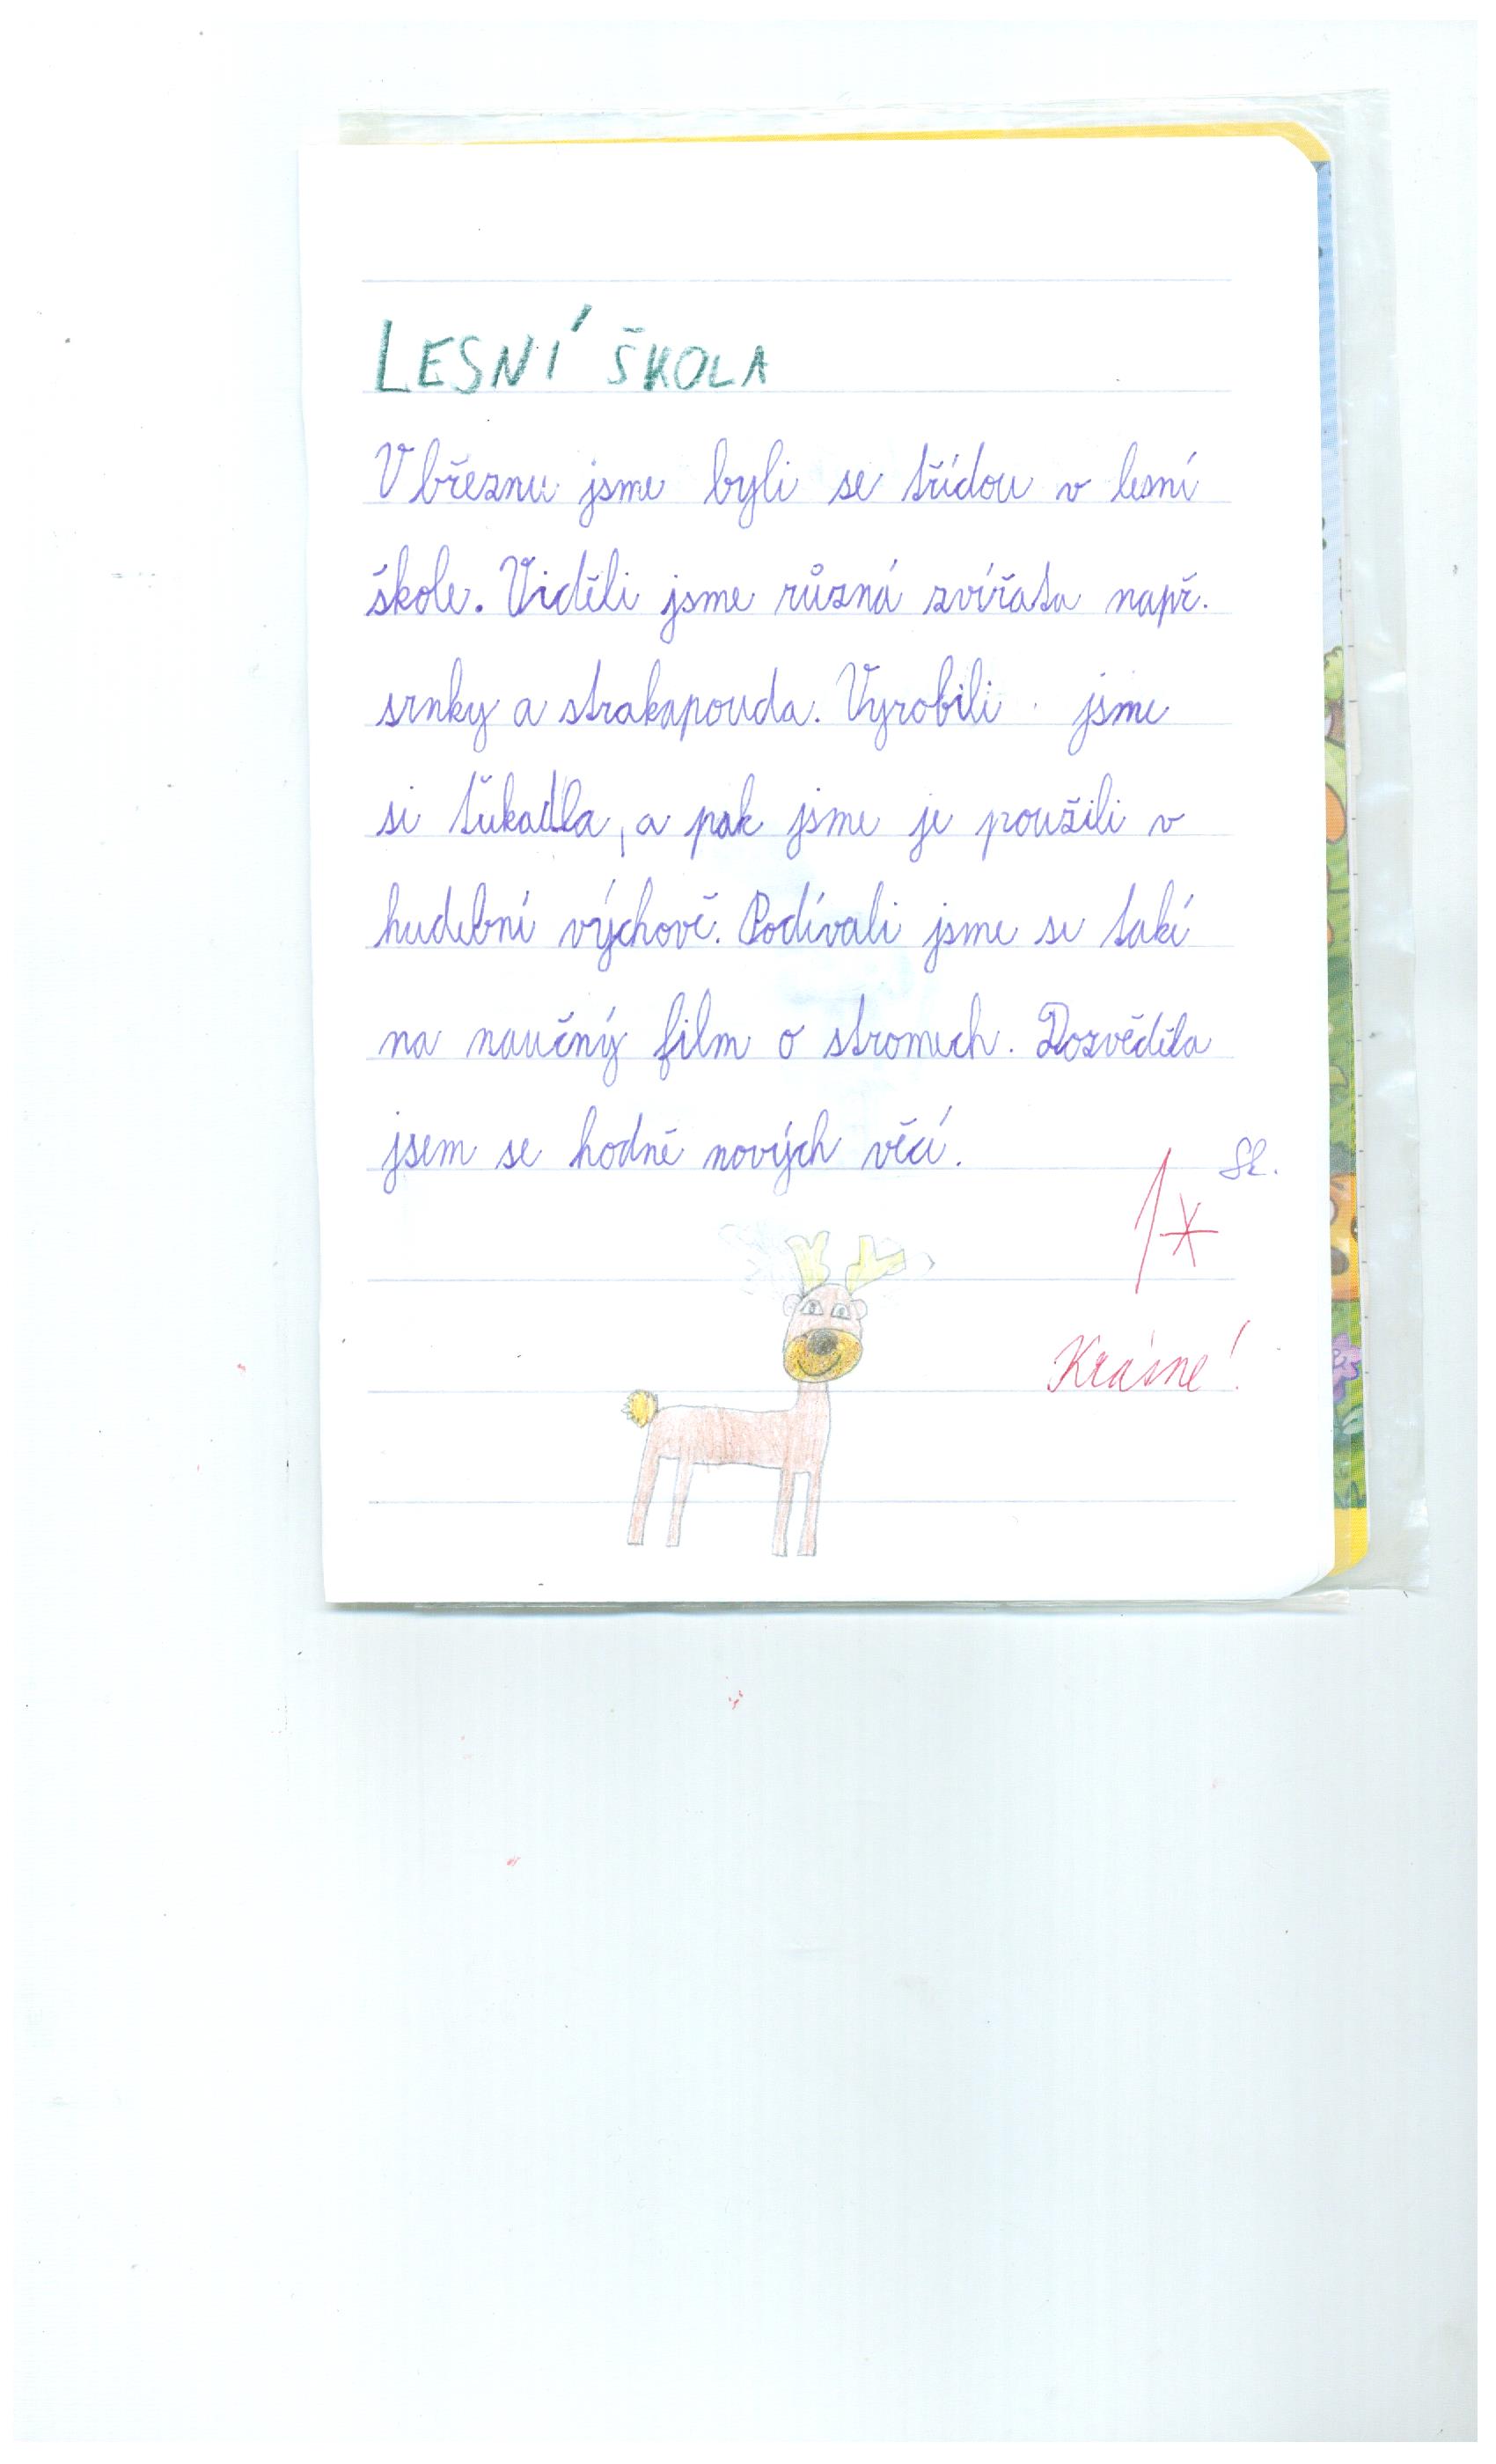 LESNÍ ŠKOLA
V březnu jsme byli se třídou v lesní
škole. Viděli jsme různá zvířata např.
srnky a strakapouda. Vyrobili jsme
si ťukadla, a pak jsme je použili v
hudební výchově. Podívali jsme se také
na naučný film o stromech. Dozvěděla
jsem se hodně nových věcí.
1*
Krásné!